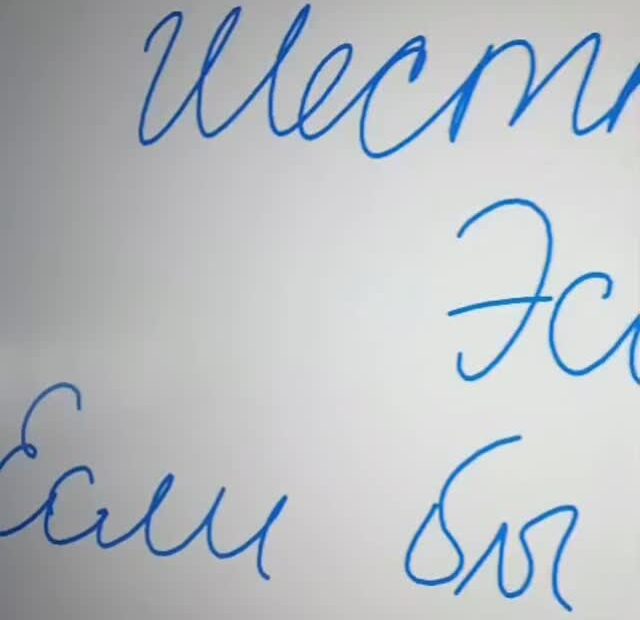 Шест
Эс
Если бы